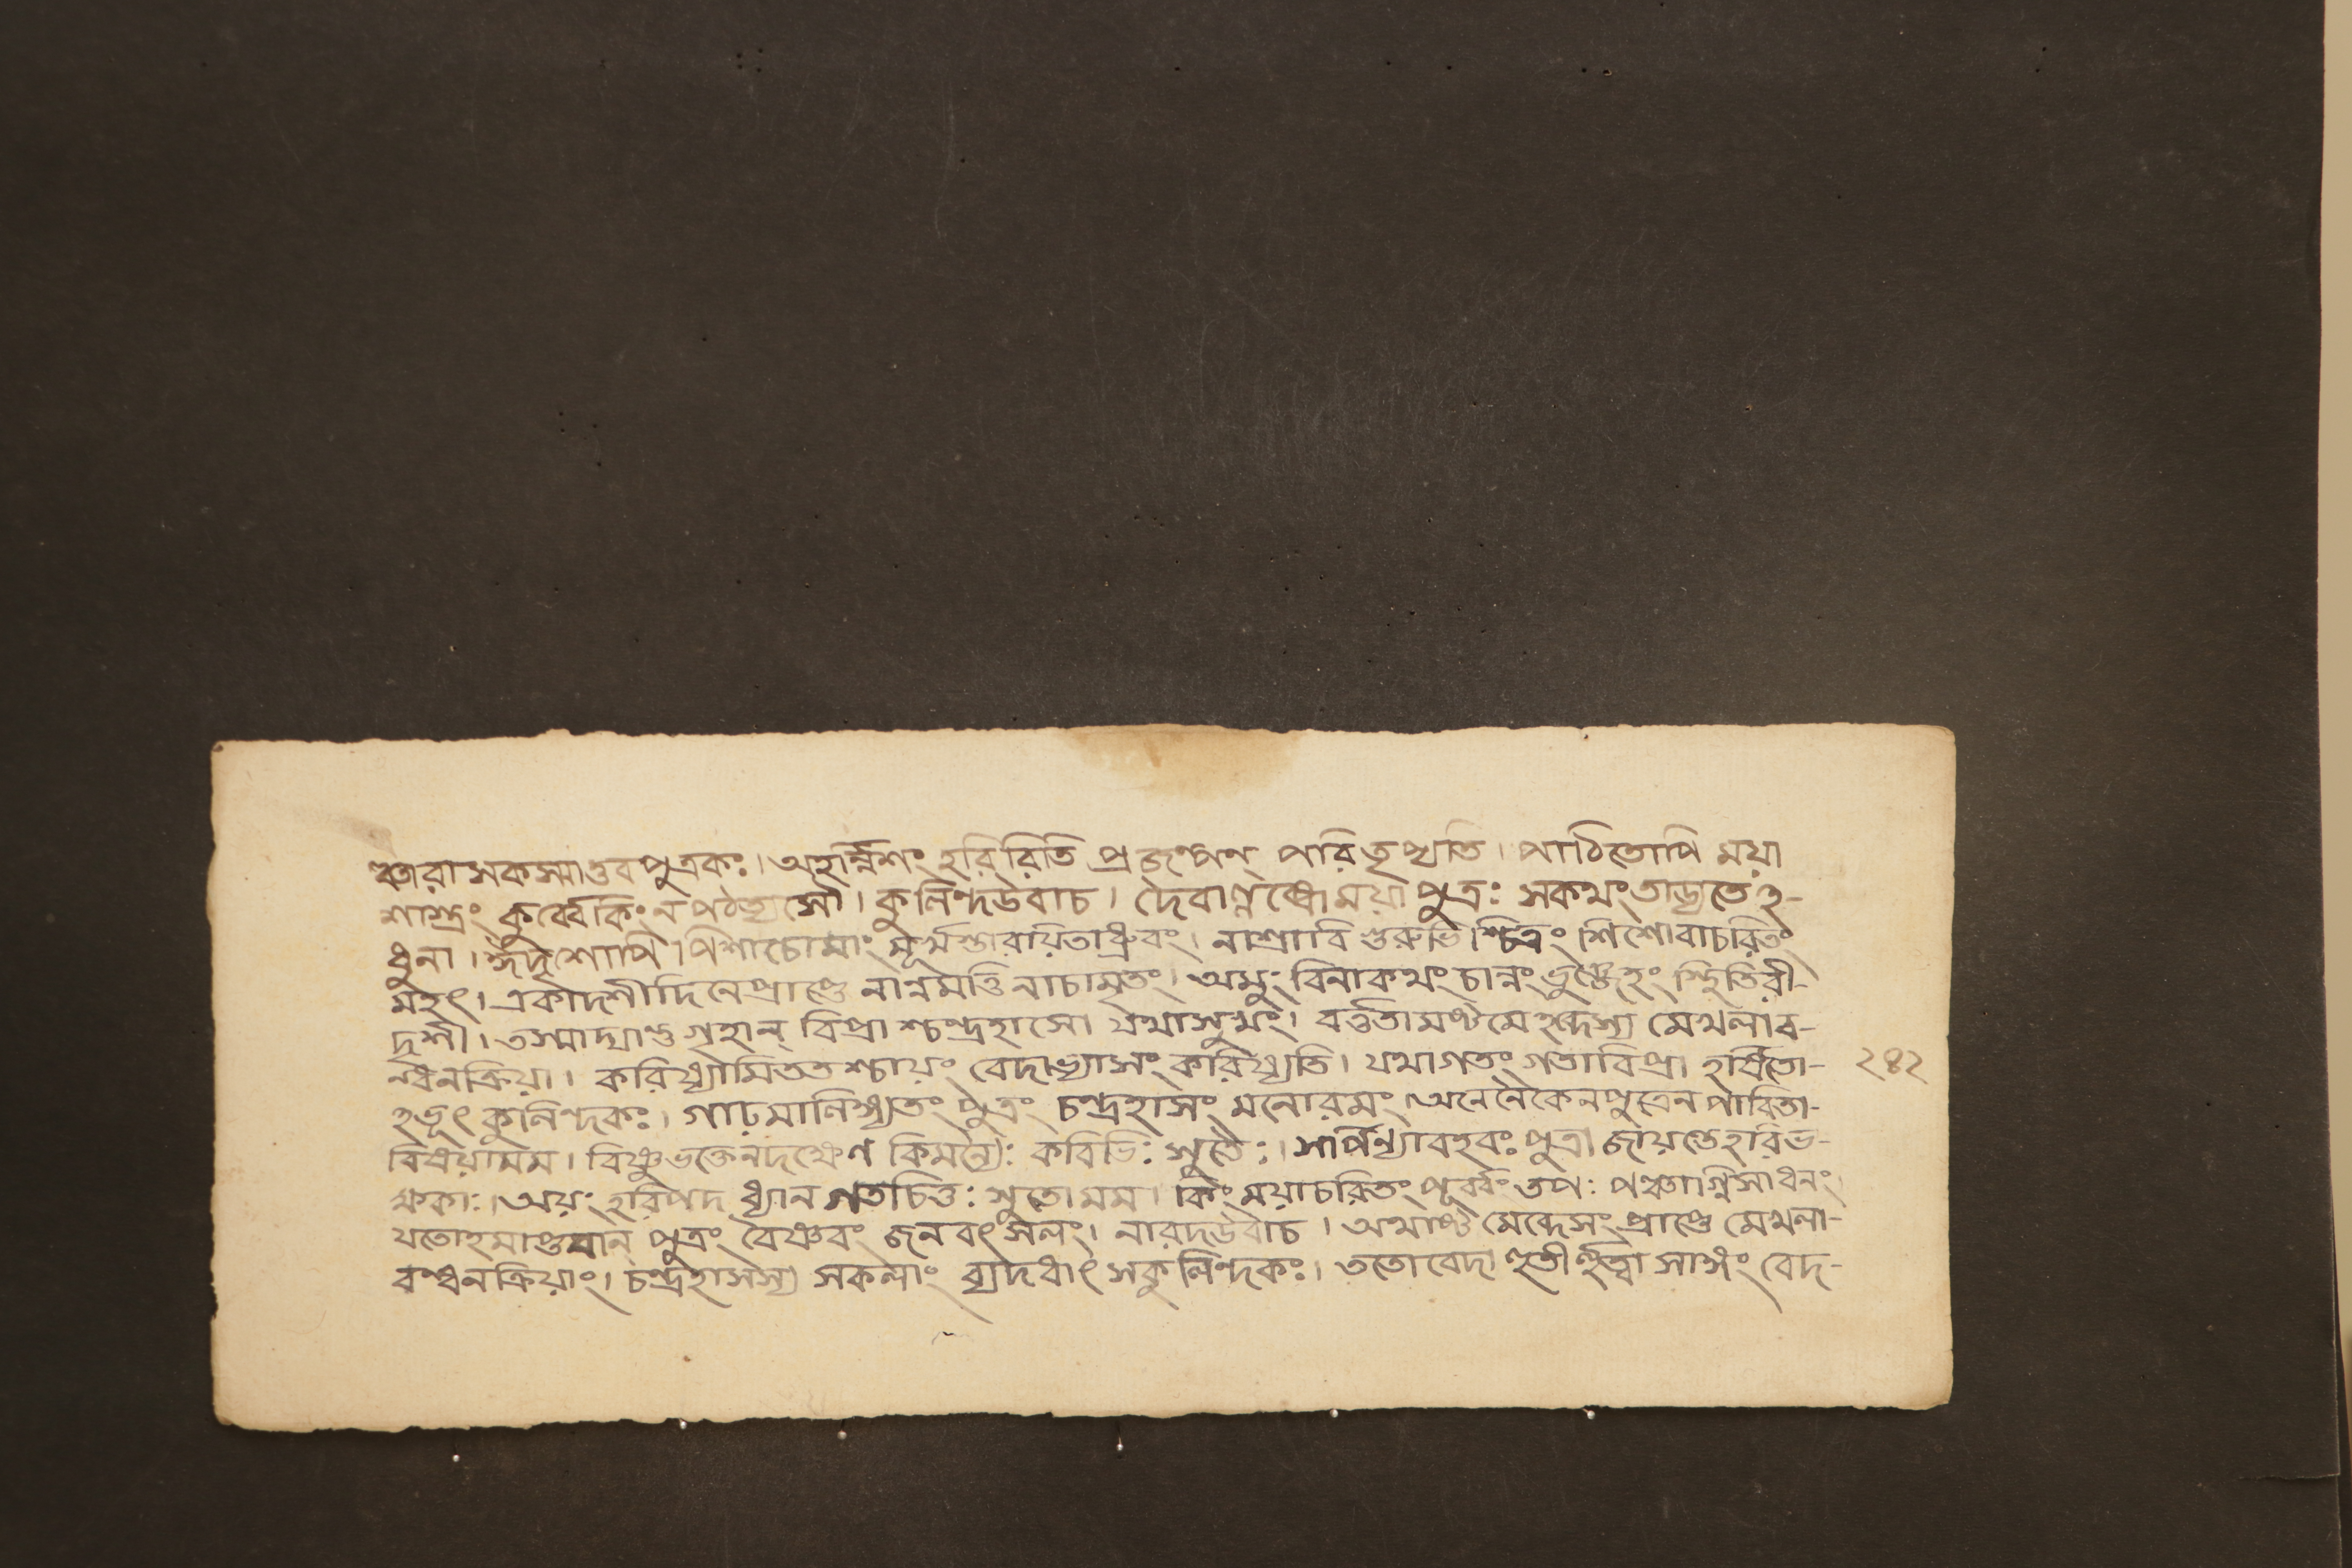 ঞ্চারাসকস্মাত্তবপুত্রকঃ। অহর্ন্নিশং হরিরিতি প্রজল্পন্ পরিতৃপ্যতি। পাঠিতোপি ময়া
শাস্ত্রং কুর্ব্বে কিং ন পঠত্যসৌ। কুলিন্দউবাচ। দৈবাল্লব্ধোময়া পুত্রঃ সকথং তাড্যতেঽ-
ধুনা। ঈদৃশোপি পিশাচোমাং মূর্খস্তারয়িতাধ্রুবং। নাশ্রাবি গুরুভিশ্চিত্রং শিশোবাচরিতং
মহৎ। একাদশীদিনেপ্রাপ্তে নান্নমত্তি নাচামৃতং। অমুং বিনাকথং চান্নং ভুঞ্জেহং স্থিতিরী-
দৃশী। তস্মাদ্যাত্তগৃহান্ বিপ্রাশ্চন্দ্রহাসো যথাসুখং। বর্ত্ততামষ্টমেহব্দেস্য মেখলাব-
ন্ধনক্রিয়া। করিষ্যামিততশ্চায়ং বেদাভ্যাসং করিষ্যতি। যথাগতং গতাবিপ্রা হর্ষিতো- ২৪২
ঽভূৎ কুলিন্দকঃ। গাঢ়মালিঙ্গ্যতং পুত্রং চন্দ্রহাসং মনোরমং। অনেনৈকেনপুত্রেনপারিতা-
বিষয়ামম। বিষ্ণুভক্তেনদক্ষেণ কিমন্যৈঃ কবিভিঃ সুতৈঃ। সর্পিন্যাবহবঃ পুত্রা জায়ন্তেহরিভ-
ক্ষকাঃ। অয়ং হরিপদ ধ্যানগতচিত্তঃ সুতোমম। কিং ময়াচরিতং পূর্ব্বং তপঃ পঞ্চাগ্নিসাধনং
যতোহমাপ্তবান্ পুত্রং বৈষ্ণবং জনবৎসলং। নারদউবাচ। অথাষ্টমেব্দেসংপ্রাপ্তে মেখলা-
বন্ধনক্রিয়াং। চন্দ্রহাসস্য সকলাং ব্যদধাৎ সকুলিন্দকঃ। ততোবেদা সাঙ্গং বেদ-